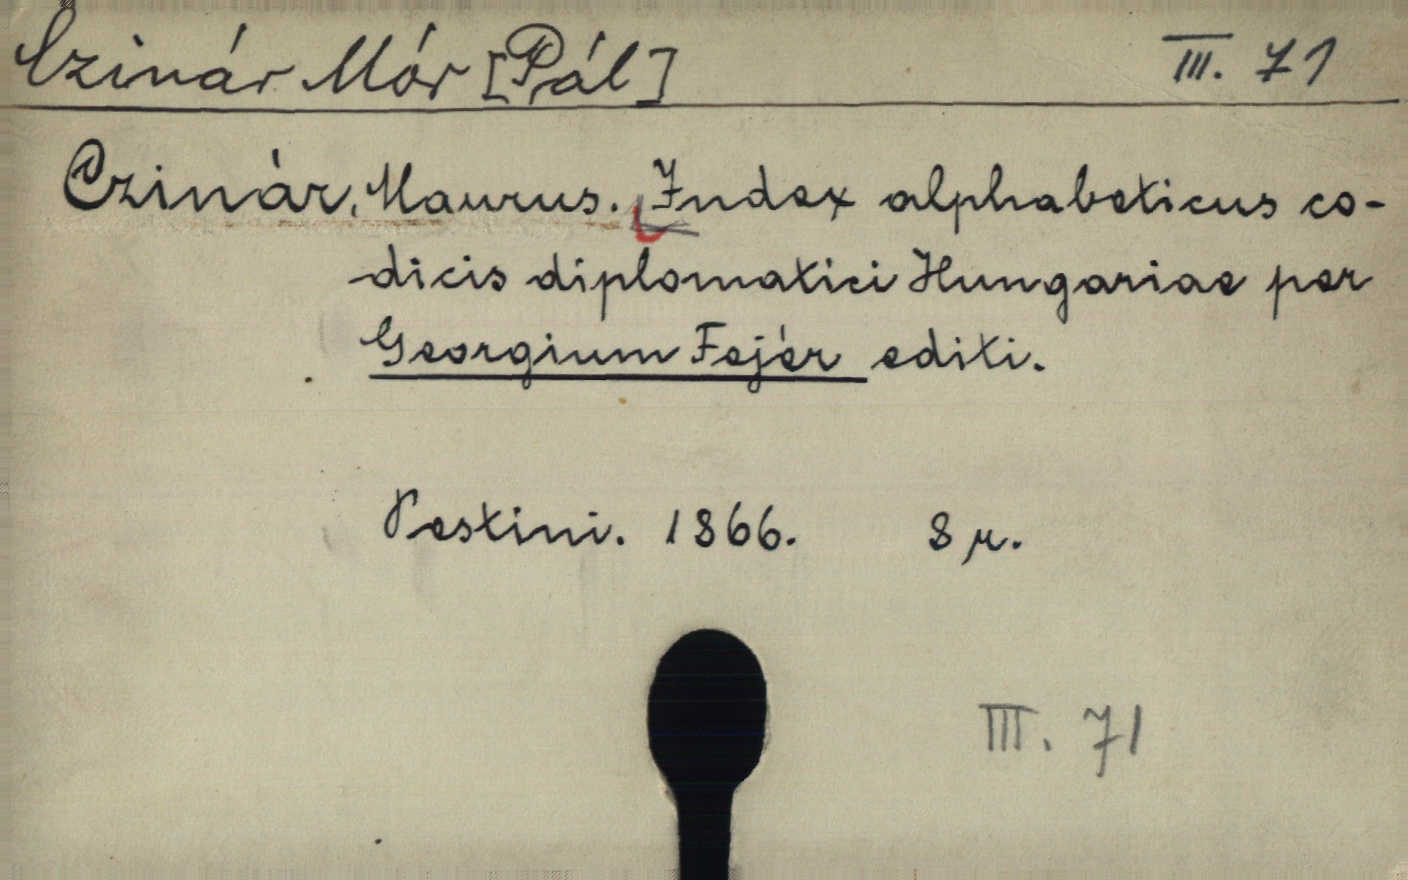 Czinár Mór [Pál] III. 71
Czinár, Maurus. Index alphabeticus co-
dicis diplomatici Hungariae per
Georgium Fejér editi.
Pestini. 1866. 8 r.
III. 71